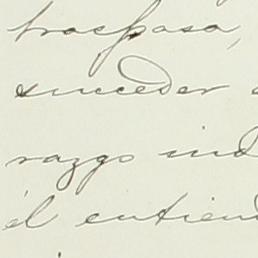 traspasa,
suceder
razgo ind
él entiend